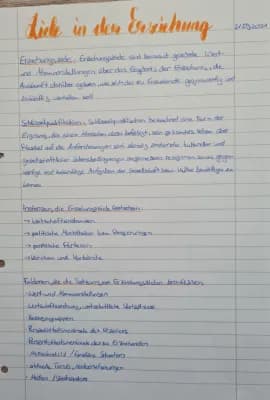 Ziele in der Erziehung
Erziehungsziele: Erziehungsziele sind bewusst gesetzte Wert-
und Normvorstellungen über das Ergebnis der Erziehung, die
Auskunft darüber geben wie sich der zu Erziehende gegenwärtig und
zukünftig verhalten soll
Schlüsselqualifikation: Schlüsselqualifikation bezeichnet eine
die einen Menschen dazu befähigt, sein
auf die Anforderungen sich ständig ändernder kultureller und
gesellschaftlicher Lebensbedingungen angemessen reagieren sowie gegen-
wärtige und zukünftige Aufgaben der Gesellschaft bzw. Kultur bewältigen zu
können
Instanzen, die Erziehungsziele festsetzen:
→ Wirtschaftsordnungen
→ politische Machthaber bzw. Regierungen
→ politische Parteien
→ Vereine und Verbände
Faktoren, die die Setzung von Erziehungszielen beeinflussen:
- Wert und Normvorstellungen
- Wirtschaftsordnung, wirtschaftliche Verhältnisse
- Bezugsgruppen
- Persönlichkeitsmerkmale des Erziehers
- Persönlichkeitsmerkmale des zu Erziehenden
- aktuelle Trends,